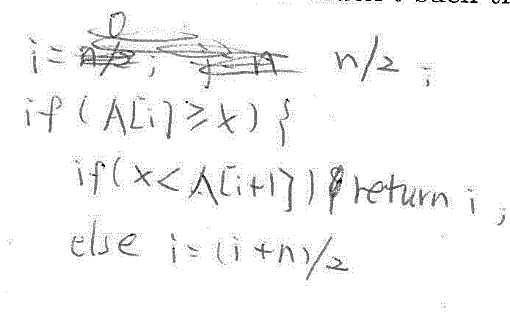 i = n/2 ;
if (A[i] ≥ x) {
if (x < A[i+1]) return i ;
else i = (i + n)/2